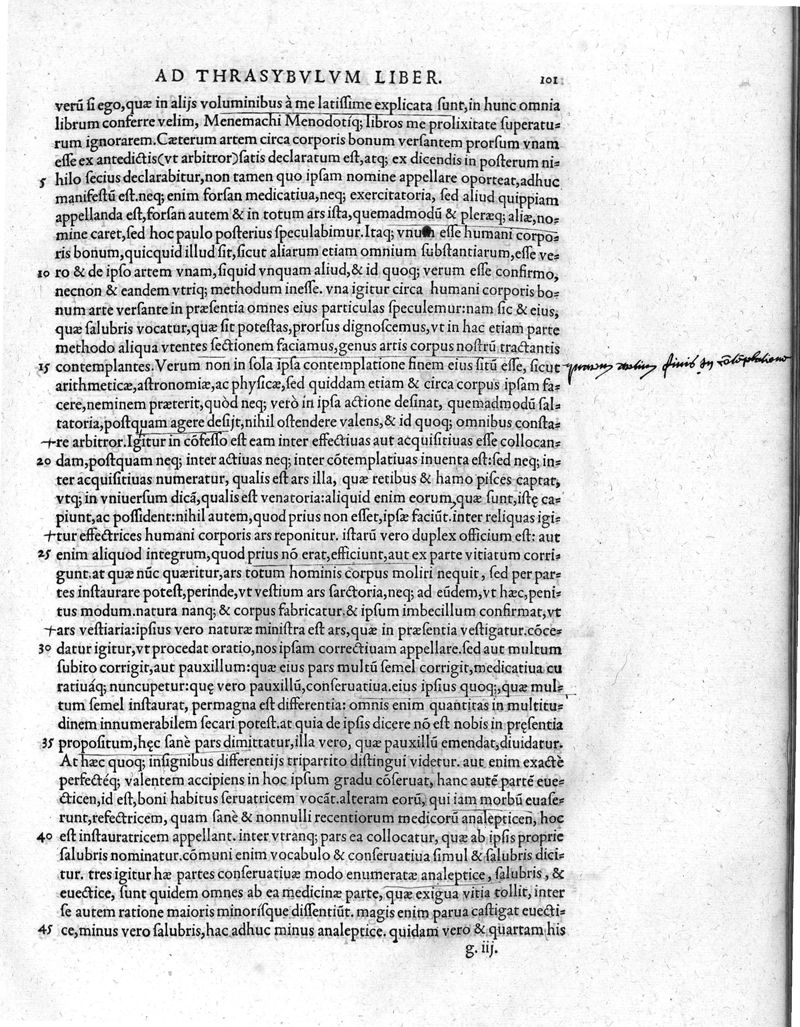 AD THRASYBVLVM LIBER. 101
verũ si ego,quæ in alijs voluminibus à me latissime explicata sunt,in hunc omnia
librum conferre velim, Menemachi Menodotíq; libros me prolixitate superatu=
rum ignorarem.Cæterum artem circa corporis bonum versantem prorsum vnam
esse ex antedictis(vt arbitror)satis declaratum est,atq; ex dicendis in posterum ni=
5 hilo secius declarabitur,non tamen quo ipsam nomine appellare oporteat,adhuc
manifestũ est.neq; enim forsan medicatiua,neq; exercitatoria, sed aliud quippiam
appellanda est,forsan autem & in totum ars ista,quemadmodũ & pleræq; aliæ,no=
mine caret,sed hoc paulo posterius speculabimur.Itaq; vnum esse humani corpo=
ris bonum,quicquid illud sit,sicut aliarum etiam omnium substantiarum,esse ve=
10 ro & de ipso artem vnam,siquid vnquam aliud,& id quoq; verum esse confirmo,
necnon & eandem vtriq; methodum inesse. vna igitur circa humani corporis bo=
num arte versante in præsentia omnes eius particulas speculemur:nam sic & eius,
quæ salubris vocatur,quæ sit potestas,prorsus dignoscemus,vt in hac etiam parte
methodo aliqua vtentes sectionem faciamus,genus artis corpus nostrũ tractantis
15 contemplantes.Verum non in sola ipsa contemplatione finem eius sitũ esse, sicut
arithmeticæ,astronomiæ,ac physicæ,sed quiddam etiam & circa corpus ipsam fa=
cere,neminem præterit,quòd neq; verò in ipsa actione desinat, quemadmodũ sal=
tatoria,postquam agere desijt,nihil ostendere valens,& id quoq; omnibus consta=
re arbitror.Igitur in cõfesso est eam inter effectiuas aut acquisitiuas esse collocan=
20 dam,postquam neq; inter actiuas neq; inter cõtemplatiuas inuenta est:sed neq; in=
ter acquisitiuas numeratur, qualis est ars illa, quæ retibus & hamo pisces captat,
vtq; in vniuersum dicã,qualis est venatoria:aliquid enim eorum,quæ sunt,istę ca=
piunt,ac possident:nihil autem,quod prius non esset,ipsæ faciũt.inter reliquas igi=
tur effectrices humani corporis ars reponitur. istarũ vero duplex officium est: aut
25 enim aliquod integrum,quod prius nõ erat,efficiunt,aut ex parte vitiatum corri=
gunt.at quæ nũc quæritur,ars totum hominis corpus moliri nequit, sed per par=
tes instaurare potest,perinde,vt vestium ars sarctoria,neq; ad eũdem,vt hæc,peni=
tus modum.natura nanq; & corpus fabricatur.& ipsum imbecillum confirmat,vt
ars vestiaria:ipsius vero naturæ ministra est ars,quæ in præsentia vestigatur.cõce=
30 datur igitur,vt procedat oratio,nos ipsam correctiuam appellare.sed aut multum
subito corrigit,aut pauxillum:quæ eius pars multũ semel corrigit,medicatiua cu
ratiuáq; nuncupetur:quę vero pauxillũ,conseruatiua.eius ipsius quoq;,quæ mul=
tum semel instaurat, permagna est differentia: omnis enim quantitas in multitu=
dinem innumerabilem secari potest.at quia de ipsis dicere nõ est nobis in pręsentia
35 propositum,hęc sanè pars dimittatur,illa vero, quæ pauxillũ emendat,diuidatur.
At hæc quoq; insignibus differentijs tripartito distingui videtur. aut enim exactè
perfectéq; valentem accipiens in hoc ipsum gradu cõseruat, hanc autẽ partẽ eue=
cticen,id est,boni habitus seruatricem vocãt.alteram eorũ, qui iam morbũ euase=
runt,refectricem, quam sanè & nonnulli recentiorum medicorũ analepticen, hoc
40 est instauratricem appellant. inter vtranq; pars ea collocatur, quæ ab ipsis proprie
salubris nominatur.cõmuni enim vocabulo & conseruatiua simul & salubris dici=
tur. tres igitur hæ partes conseruatiuæ modo enumeratæ analeptice, salubris, &
euectice, sunt quidem omnes ab ea medicinæ parte, quæ exigua vitia tollit, inter
se autem ratione maioris minorisque dissentiũt. magis enim parua castigat euecti=
45 ce,minus vero salubris,hac adhuc minus analeptice. quidam vero & quartam his
g. iij.